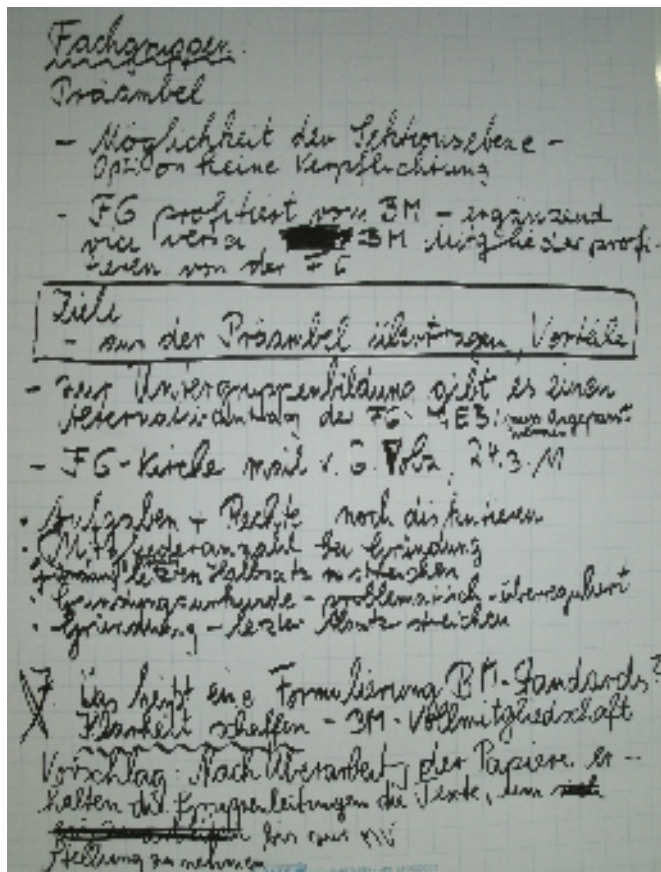 Fachgruppen
Präambel
- Möglichkeit der Sektionsebene -
Option keine Verpflichtung
- FG profitiert vom BM - ergänzend
vice versa BM Mitglieder profi-
tieren von der FG
Ziele
- aus der Präambel übertragen, Vorteile
- zur Untergruppenbildung gibt es einen
Alternativantrag der FG-MEB muss angepasst
werden
- FG-Kirche mail v. G. 24.3.11
· Aufgaben + Rechte noch diskutieren
· Mitgliederanzahl bei Gründung
letzten Halbsatz streichen
· Gründungsurkunde - problematisch - überreguliert
· Gründung - letzter Absatz streichen
Was heißt eine Formulierung BM-Standards?
Klarheit schaffen - BM-Vollmitgliedschaft
Vorschlag: Nach Überarbeitg der Papiere er-
halten die Gruppenleitungen die Texte, um
bis zur MV
Stellung zu nehmen